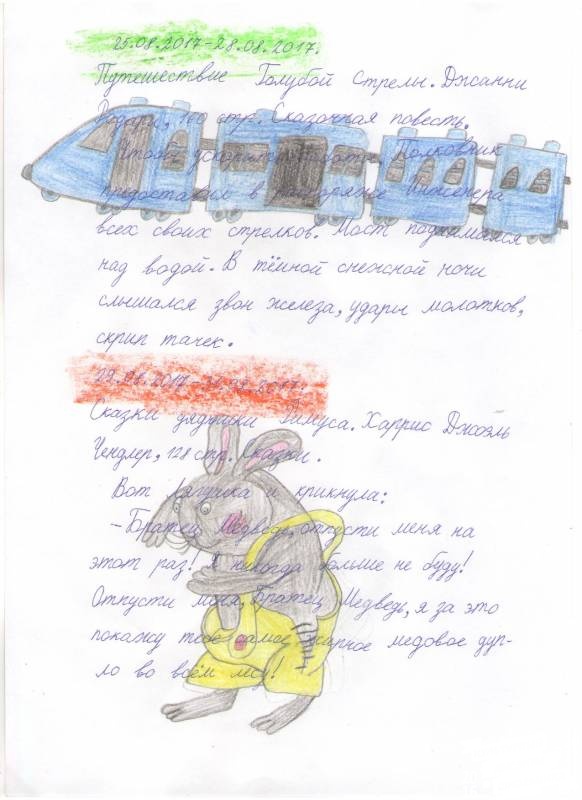 25.08.2017-28.08.2017.
Путешествие Голубой Стрелы. Джанни
Родари, 160 стр. Сказочная повесть.
Чтобы ускорить работы, Полковник
предоставил в распоряжение Инженера
всех своих стрелков. Мост поднимался
над водой. В тёмной снежной ночи
слышался звон железа, удары молотков,
скрип тачек.
29.08.2017-31.08.2017.
Сказки дядюшки Римуса. Харрис Джоэль
Чендлер, 128 стр. Сказки.
Вот лягушка и крикнула:
- Братец Медведь, отпусти меня на
этот раз! Я никогда больше не буду!
Отпусти меня, Братец Медведь, я за это
покажу тебе самое жирное медовое дуп-
ло во всём лесу!